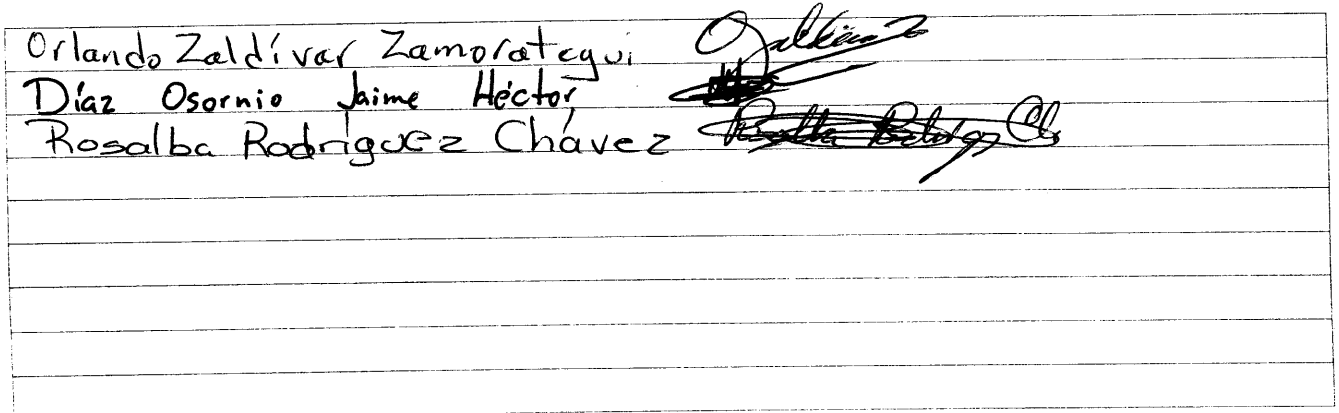 Orlando Zaldívar Zamorategui
Díaz Osornio Jaime Héctor
Rosalba Rodríguez Chávez